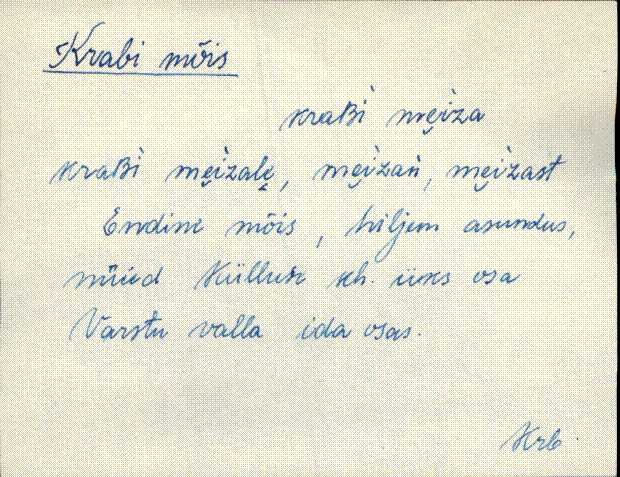 Krabi mõis
kraʙì mẹìza
kraʙì mẹìzalẹ, mẹìzan, mẹìzast
Endine mõis, hiljem asundus,
nüüd Külluse kh. üks osa
Varstu valla ida osas.
Krb